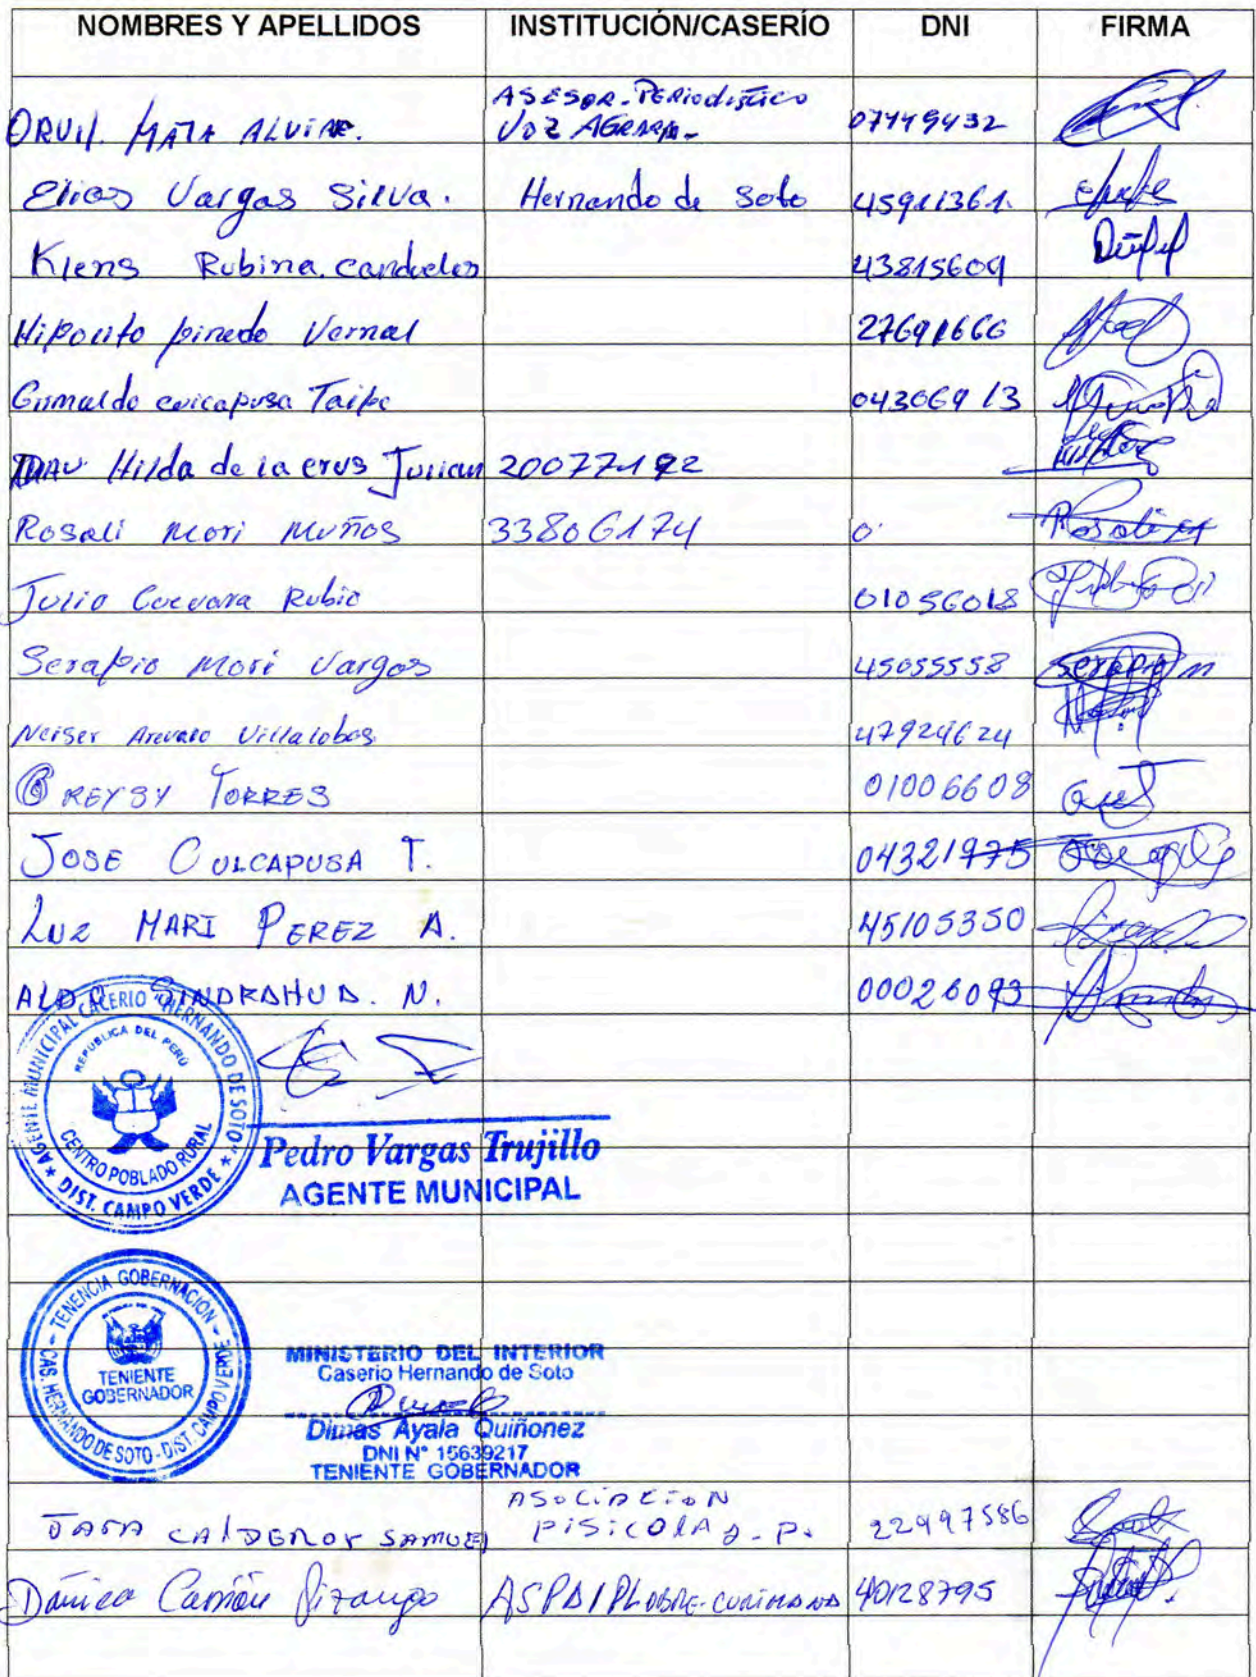 NOMBRES Y APELLIDOS INSTITUCIÓN/CASERÍO DNI FIRMA
ASESOR. PERiodistico
ORVIL MATA ALVINE. VOZ AGRARIA- 07449432
Elias Vargas Silva. Hernando de Soto 45911361.
Klens Rubina. 43815609
Hipolito pinedo Vernal 27691666
Grimaldo cuicapusa Taipe 04306913
Hilda de la crus Julian 20077192
Rosali Mori Muños 33806174 0.
Julio Guevara Rubio 01056018
Serapio Mori Vargas 45055558 serapio m
Neiser Arevalo Villalobos 47924624
GREYSY TORRES 01006608
JOSE CULCAPUSA T. 04321975
LUZ MARI PEREZ A. 45105350
ALDO SINDRAHUA. N. 00026093
AGENTE MUNICIPAL CACERIO "HERNANDO DE SOTO"
REPUBLICA DEL PERÚ
CENTRO POBLADO RURAL
★ DIST. CAMPO VERDE ★
Pedro Vargas Trujillo
AGENTE MUNICIPAL
TENENCIA GOBERNACION
TENIENTE
GOBERNADOR
CAS. HERNANDO DE SOTO - DIST. CAMPO VERDE
MINISTERIO DEL INTERIOR
Caserio Hernando de Soto
Dimas Ayala Quiñonez
DNI N° 15639217
TENIENTE GOBERNADOR
ASOCIACION
JARA CALDERON SAMUEL PISICOLA A.P. 22997586
Carrión Pizango 40128795